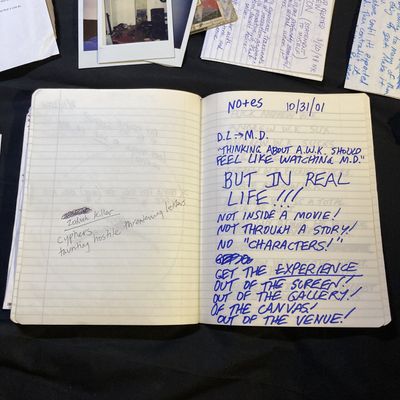 Zodiak Killer
cyphers
taunting hostile threatening letters
Notes 10/31/01
D.L → M.D.
"THINKING ABOUT A.W.K. SHOULD
FEEL LIKE WATCHING M.D."
BUT IN REAL
LIFE!!!
NOT INSIDE A MOVIE!
NOT THROUGH A STORY!
NO "CHARACTERS!"
GET THE EXPERIENCE
OUT OF THE SCREEN!
OUT OF THE GALLERY!
OF THE CANVAS!
OUT OF THE VENUE!